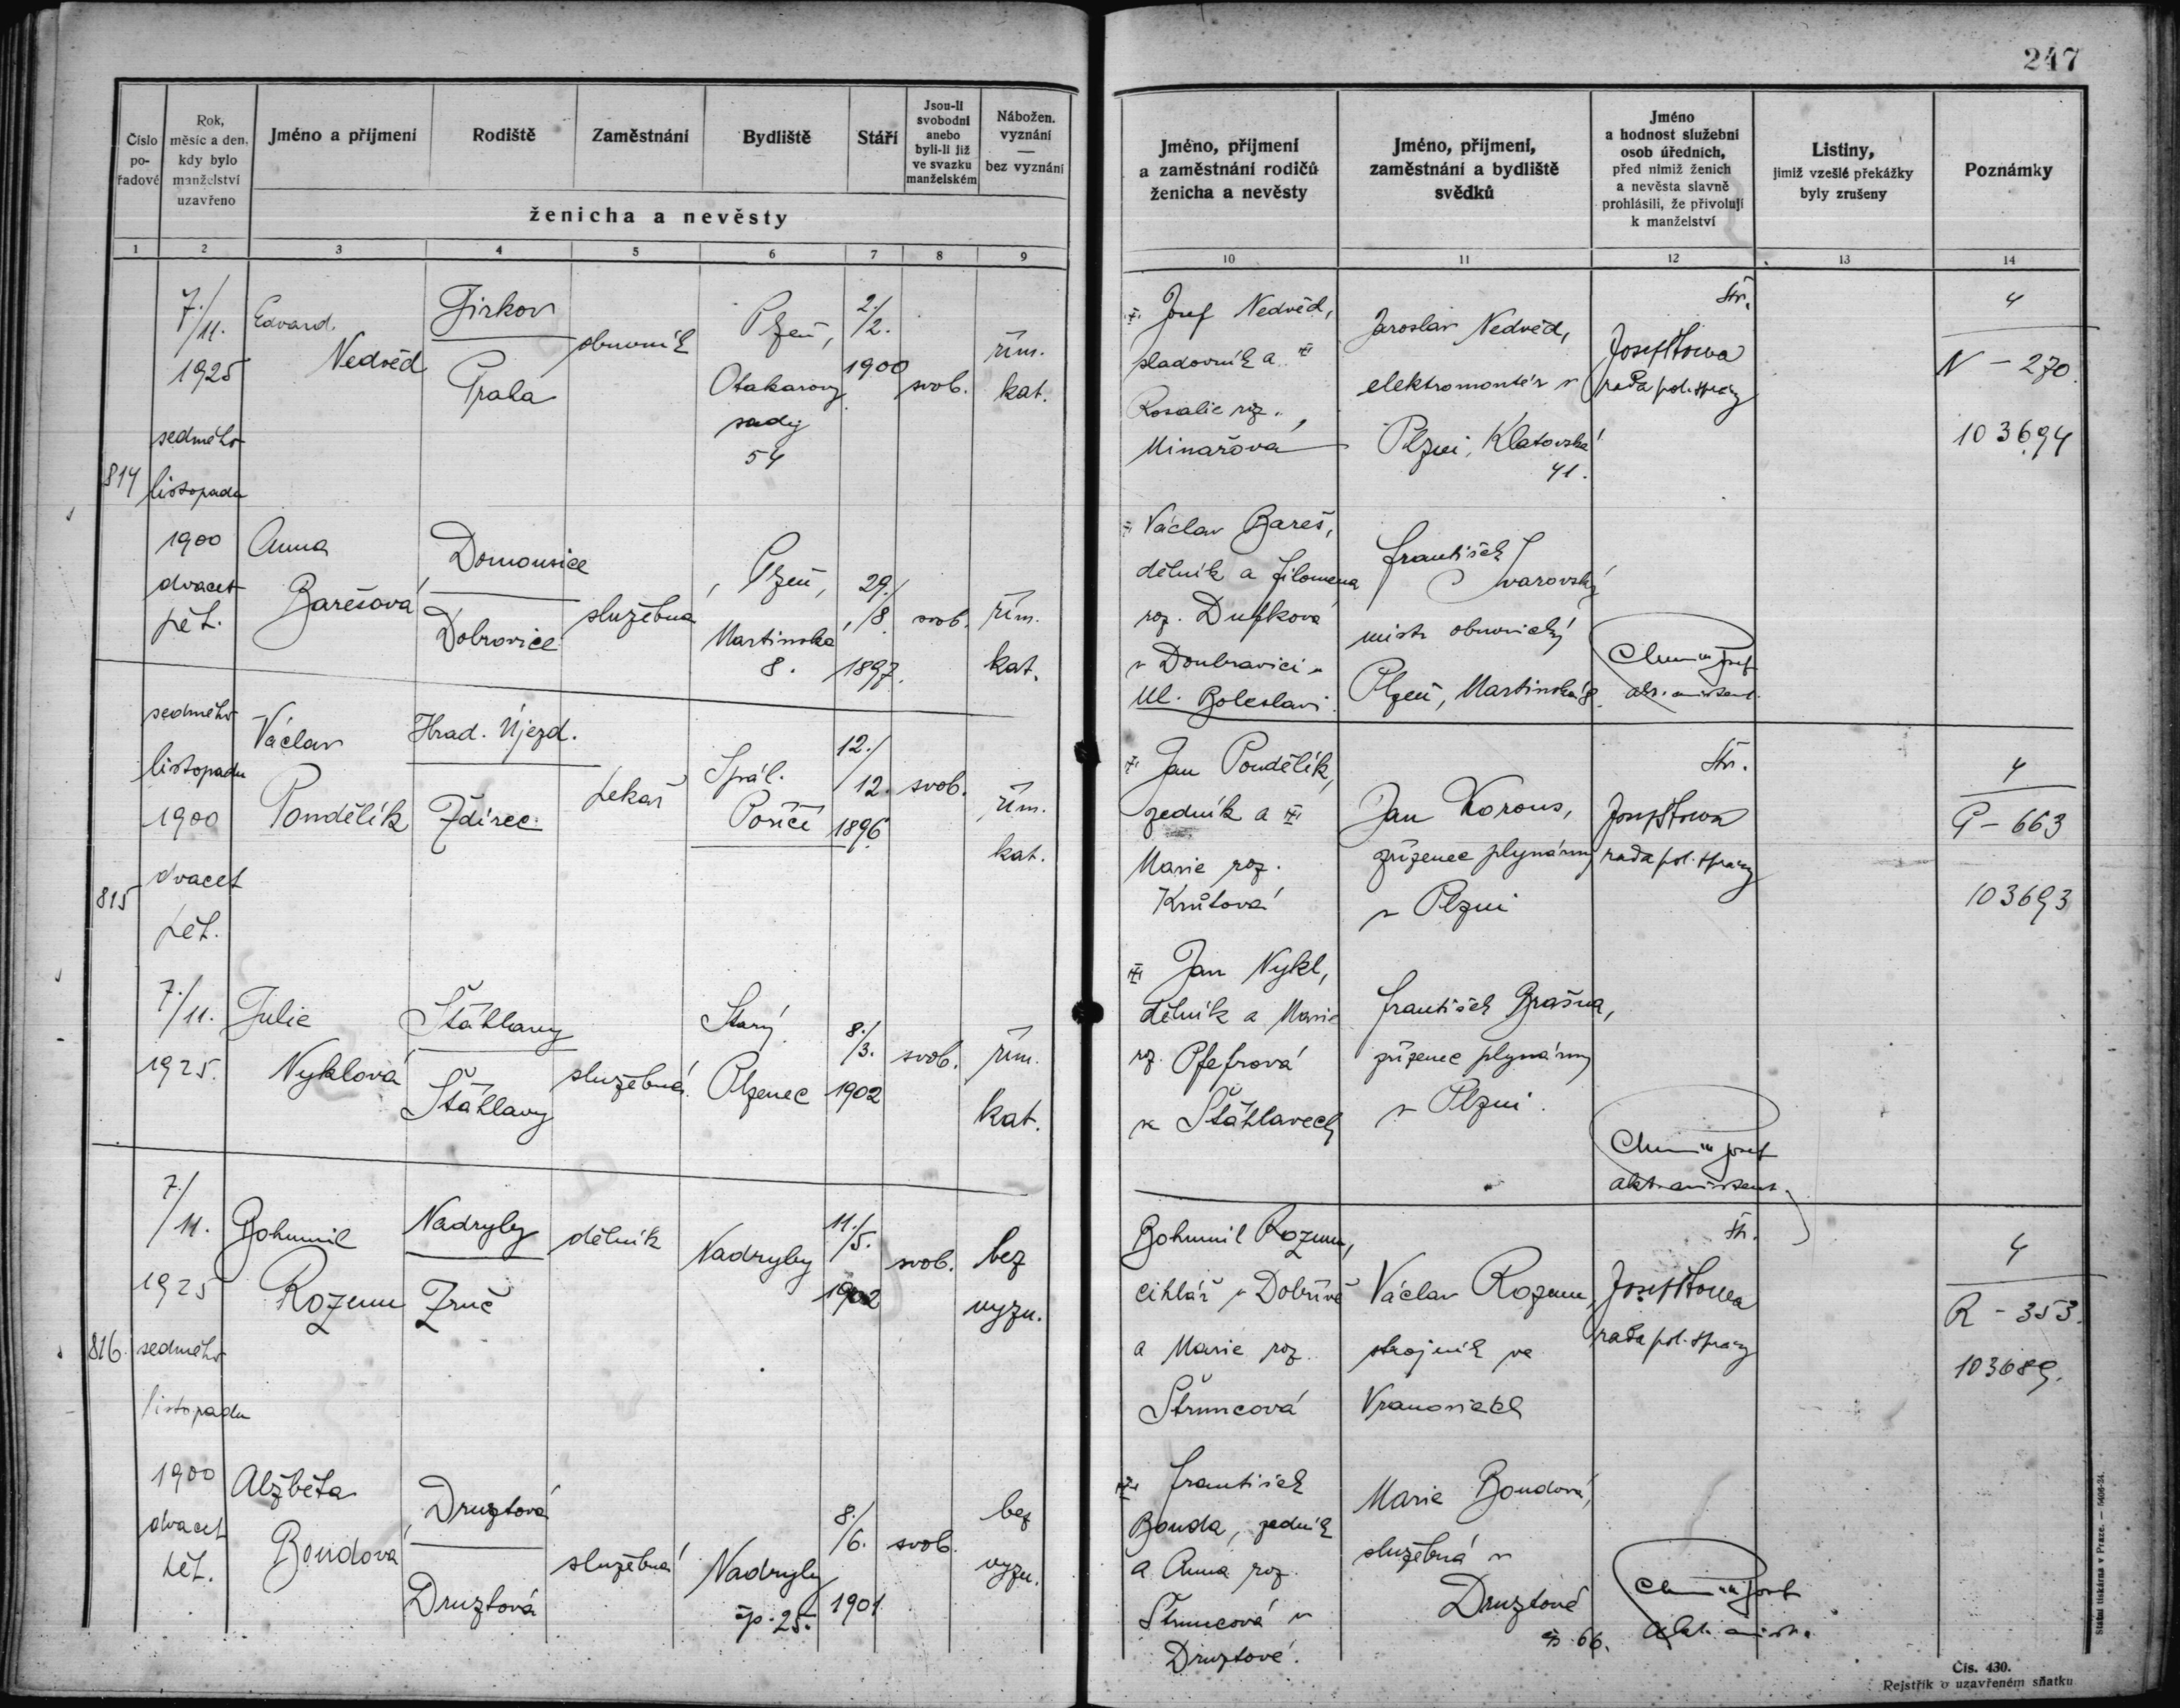 247
Číslo pořadové
Rok, měsíc a den, kdy bylo manželství uzavřeno
Jméno a příjmení
Rodiště
Zaměstnání
Bydliště
Stáří
Jsou-li svobodní anebo byli-li již ve svazku manželském
Nábožen. vyznání — bez vyznání
ženicha a nevěsty
1 2 3 4 5 6 7 8 9
Jméno, příjmení a zaměstnání rodičů ženicha a nevěsty
Jméno, příjmení, zaměstnání a bydliště svědků
Jméno a hodnost služební osob úředních, před nimiž ženich a nevěsta slavně prohlásili, že přivolují k manželství
Listiny, jimiž vzešlé překážky byly zrušeny
Poznámky
10 11 12 13 14
814
7./11.
1925
sedmého
listopadu
1900
dvacet
pět.
Edvard
Nedvěd
Jirkov
obuvník
Plzeň,
Otakarovy
sady
54
2./2.
1900
svob.
řím.
kat.
Josef Nedvěd,
sladovník a
Rosalie roz.
Minařova
Jaroslav Nedvěd,
elektromontér v
Plzni, Klatovská
41.
Str.
rada pol. správy
4
N - 270.
103694
Anna
Barešová
Domousice
Dobrovice
služebná
Plzeň,
Martinská
8.
29./8.
1897.
svob.
řím.
kat.
Václav Bareš,
dělník a Filomena
roz. Dufková
v Doubravici u
Ml. Boleslavi.
František
mistr obuvnický
Plzeň, Martinská 8.
Josef
815
sedmého
listopadu
1900
dvacet
pět.
7./11.
1925.
Václav
Pondělík
Hrad. Újezd.
Ždírec
pekař
Spál.
Poříčí
12./12.
1896
svob.
řím.
kat.
Jan Pondělík,
zedník a
Marie roz.
Jan Korous,
zřízenec plynárny
v Plzni
Str.
rada pol. správy
4
P - 663
103693
Julie
Nyklová
Šťáhlavy
Šťáhlavy
služebná
Starý
Plzenec
8./3.
1902
svob.
řím.
kat.
Jan Nykl,
dělník a Marie
roz. Pfefrová
ve Šťáhlavech
František Brašna,
zřízenec plynárny
v Plzni.
Josef
816.
7./11.
1925
sedmého
listopadu
1900
dvacet
pět.
Bohumil
Rozum
Nadryby
Zruč
dělník
Nadryby
11./5.
1902
svob.
bez
vyzn.
Bohumil Rozum,
cihlář v Dobřívě
a Marie roz.
Štruncová
Václav Rozum,
strojník ve
Str.
rada pol. správy
4
R - 353.
103689.
Alžběta
Boudová
Druztová
Druztová
služebná
Nadryby
čp. 25.
8./6.
1901
svob.
bez
vyzn.
František
Bouda, zedník
a Anna roz.
Štruncová v
Druztové.
Marie Boudová,
služebná v
Druztové
čp 66.
Josef
Státní tiskárna v Praze. — 5406-24.
Čís. 430.
Rejstřík o uzavřeném sňatku